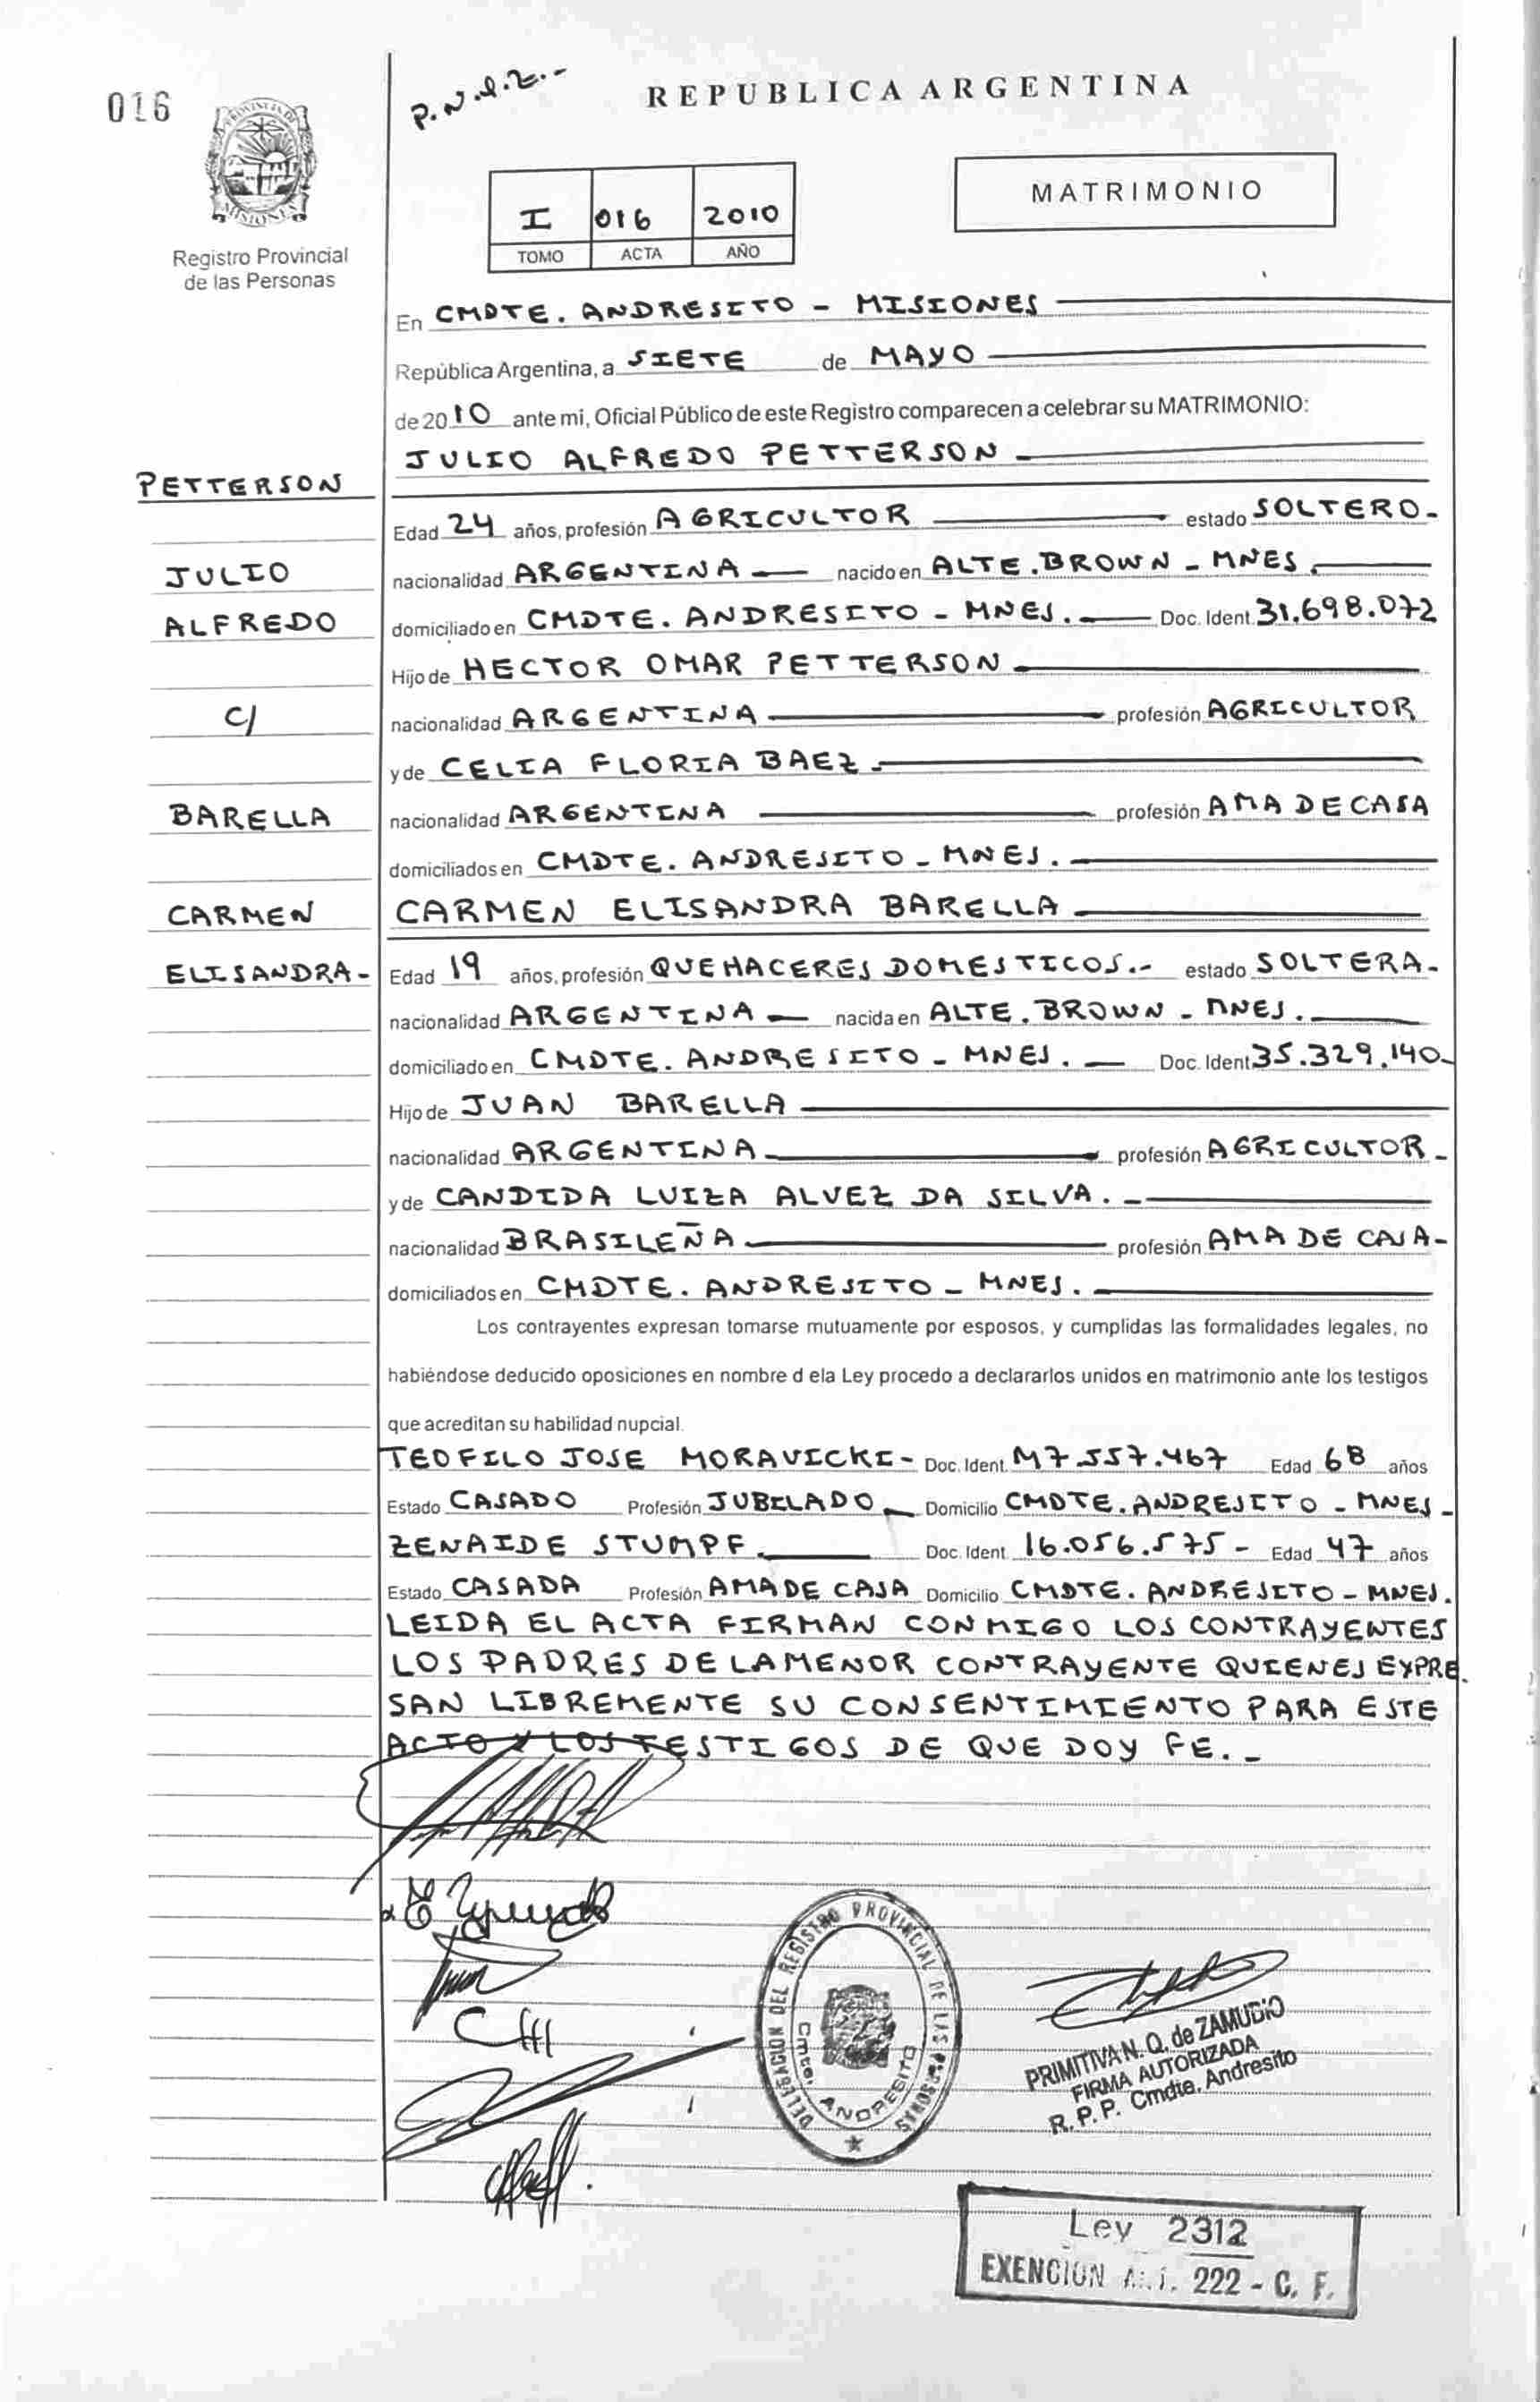 016
P.N.Q.Z.-
REPUBLICA ARGENTINA
PROVINCIA DE
MISIONES
Registro Provincial
de las Personas
I 016 2010
TOMO ACTA AÑO
MATRIMONIO
En CMDTE. ANDRESITO - MISIONES
República Argentina, a SIETE de MAYO
de 2010 ante mi, Oficial Público de este Registro comparecen a celebrar su MATRIMONIO:
JULIO ALFREDO PETTERSON
PETTERSON
Edad 24 años, profesión AGRICULTOR estado SOLTERO-
JULIO
nacionalidad ARGENTINA nacido en ALTE. BROWN - MNES.
ALFREDO
domiciliado en CMDTE. ANDRESITO - MNES. Doc. Ident. 31.698.072
Hijo de HECTOR OMAR PETTERSON
C/
nacionalidad ARGENTINA profesión AGRICULTOR
y de CELIA FLORIA BAEZ
BARELLA
nacionalidad ARGENTINA profesión AMA DE CASA
domiciliados en CMDTE. ANDRESITO - MNES.
CARMEN
CARMEN ELISANDRA BARELLA
ELISANDRA-
Edad 19 años, profesión QUEHACERES DOMESTICOS.- estado SOLTERA-
nacionalidad ARGENTINA nacida en ALTE. BROWN - MNES.
domiciliado en CMDTE. ANDRESITO - MNES. Doc. Ident. 35.329.140-
Hijo de JUAN BARELLA
nacionalidad ARGENTINA profesión AGRICULTOR-
y de CANDIDA LUIZA ALVEZ DA SILVA.-
nacionalidad BRASILEÑA profesión AMA DE CASA-
domiciliados en CMDTE. ANDRESITO - MNES.
Los contrayentes expresan tomarse mutuamente por esposos, y cumplidas las formalidades legales, no
habiéndose deducido oposiciones en nombre d ela Ley procedo a declararlos unidos en matrimonio ante los testigos
que acreditan su habilidad nupcial.
TEOFILO JOSE MORAVICKI- Doc. Ident. M7.557.467 Edad 68 años
Estado CASADO Profesión JUBILADO Domicilio CMDTE. ANDRESITO - MNES-
ZENAIDE STUMPF. Doc. Ident. 16.056.575- Edad 47 años
Estado CASADA Profesión AMA DE CASA Domicilio CMDTE. ANDRESITO - MNES.
LEIDA EL ACTA FIRMAN CONMIGO LOS CONTRAYENTES
LOS PADRES DE LA MENOR CONTRAYENTE QUIENES EXPRE
SAN LIBREMENTE SU CONSENTIMIENTO PARA ESTE
ACTO Y LOS TESTIGOS DE QUE DOY FE.-
DELEGACION DEL REGISTRO PROVINCIAL DE LAS PERSONAS
Cmte. ANDRESITO
PRIMITIVA N. Q. de ZAMUDIO
FIRMA AUTORIZADA
R. P. P. Cmdte. Andresito
Ley 2312
EXENCION Art. 222 - C. F.